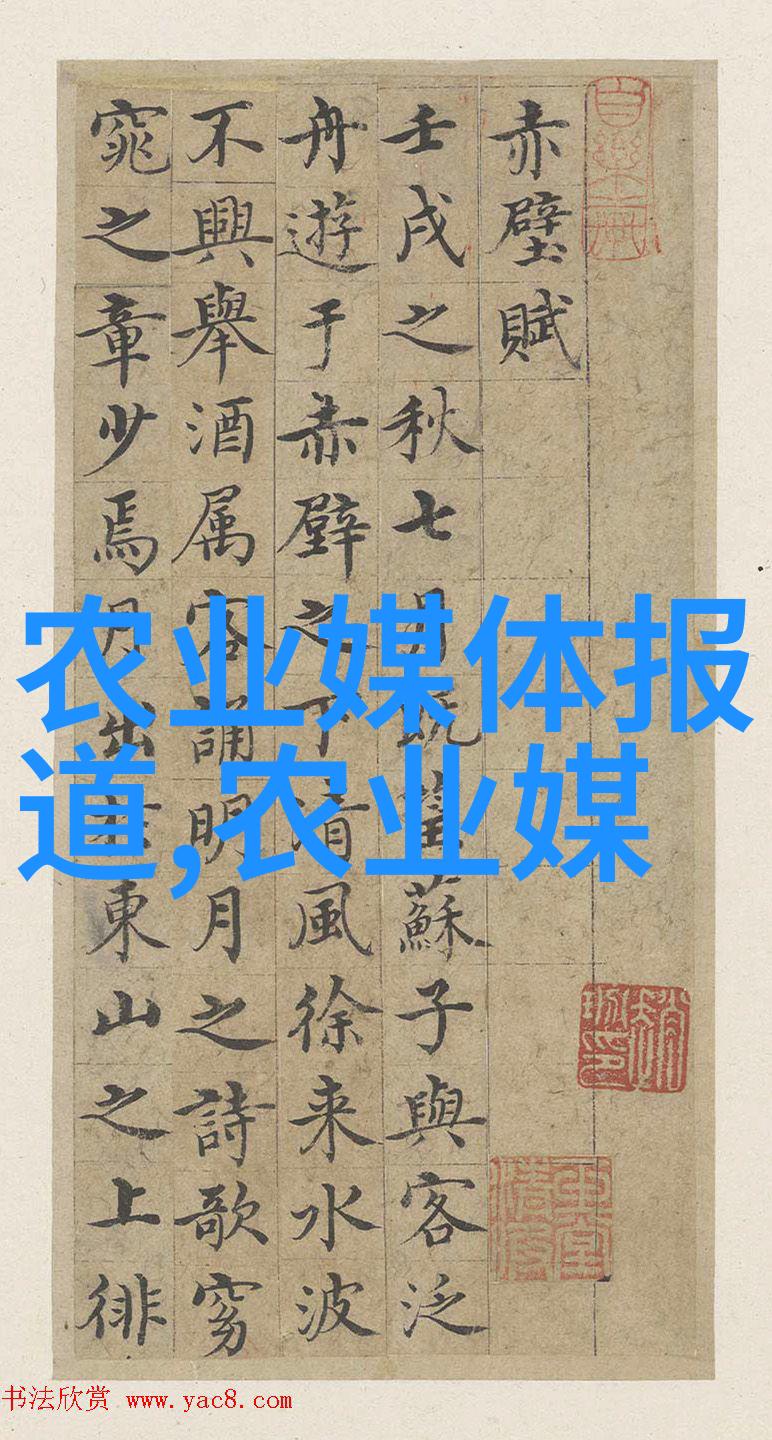 赤壁賦
壬戌之秋七月既望蘇子與客泛
舟遊于赤壁之下清風徐来水波
不興舉酒属客誦明月之詩歌窈
窕之章少焉月出於東山之上徘
农业媒体报
道,农业媒
书法欣赏 www.yac8.com